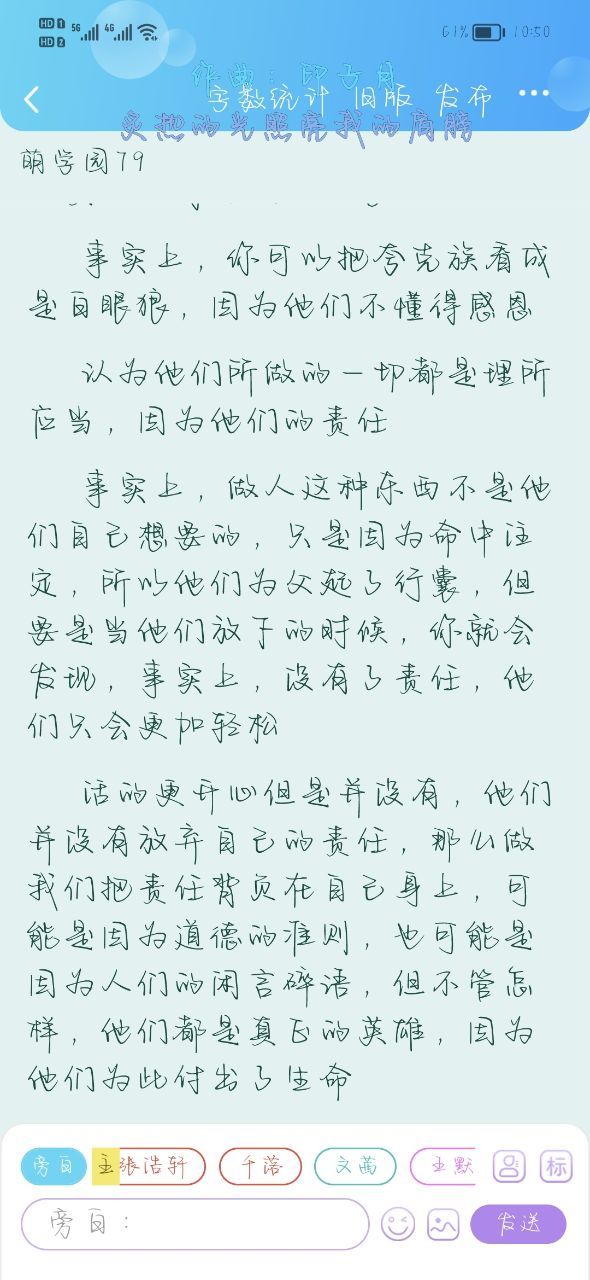 HD 1 5G 4G
HD 2
61% 10:50
作曲：邱子月
字数统计 旧版 发布 ...
炙热的光照亮我的肩膀
萌学园79
事实上，你可以把夸克族看成
是白眼狼，因为他们不懂得感恩
认为他们所做的一切都是理所
应当，因为他们的责任
事实上，做人这种东西不是他
们自己想要的，只是因为命中注
定，所以他们为父起了行囊，但
要是当他们放下的时候，你就会
发现，事实上，没有了责任，他
们只会更加轻松
活的更开心但是并没有，他们
并没有放弃自己的责任，那么做
我们把责任背负在自己身上，可
能是因为道德的准则，也可能是
因为人们的闲言碎语，但不管怎
样，他们都是真正的英雄，因为
他们为此付出了生命
旁白 主 张浩轩 千落 文茜 王默 标
旁白： 发送